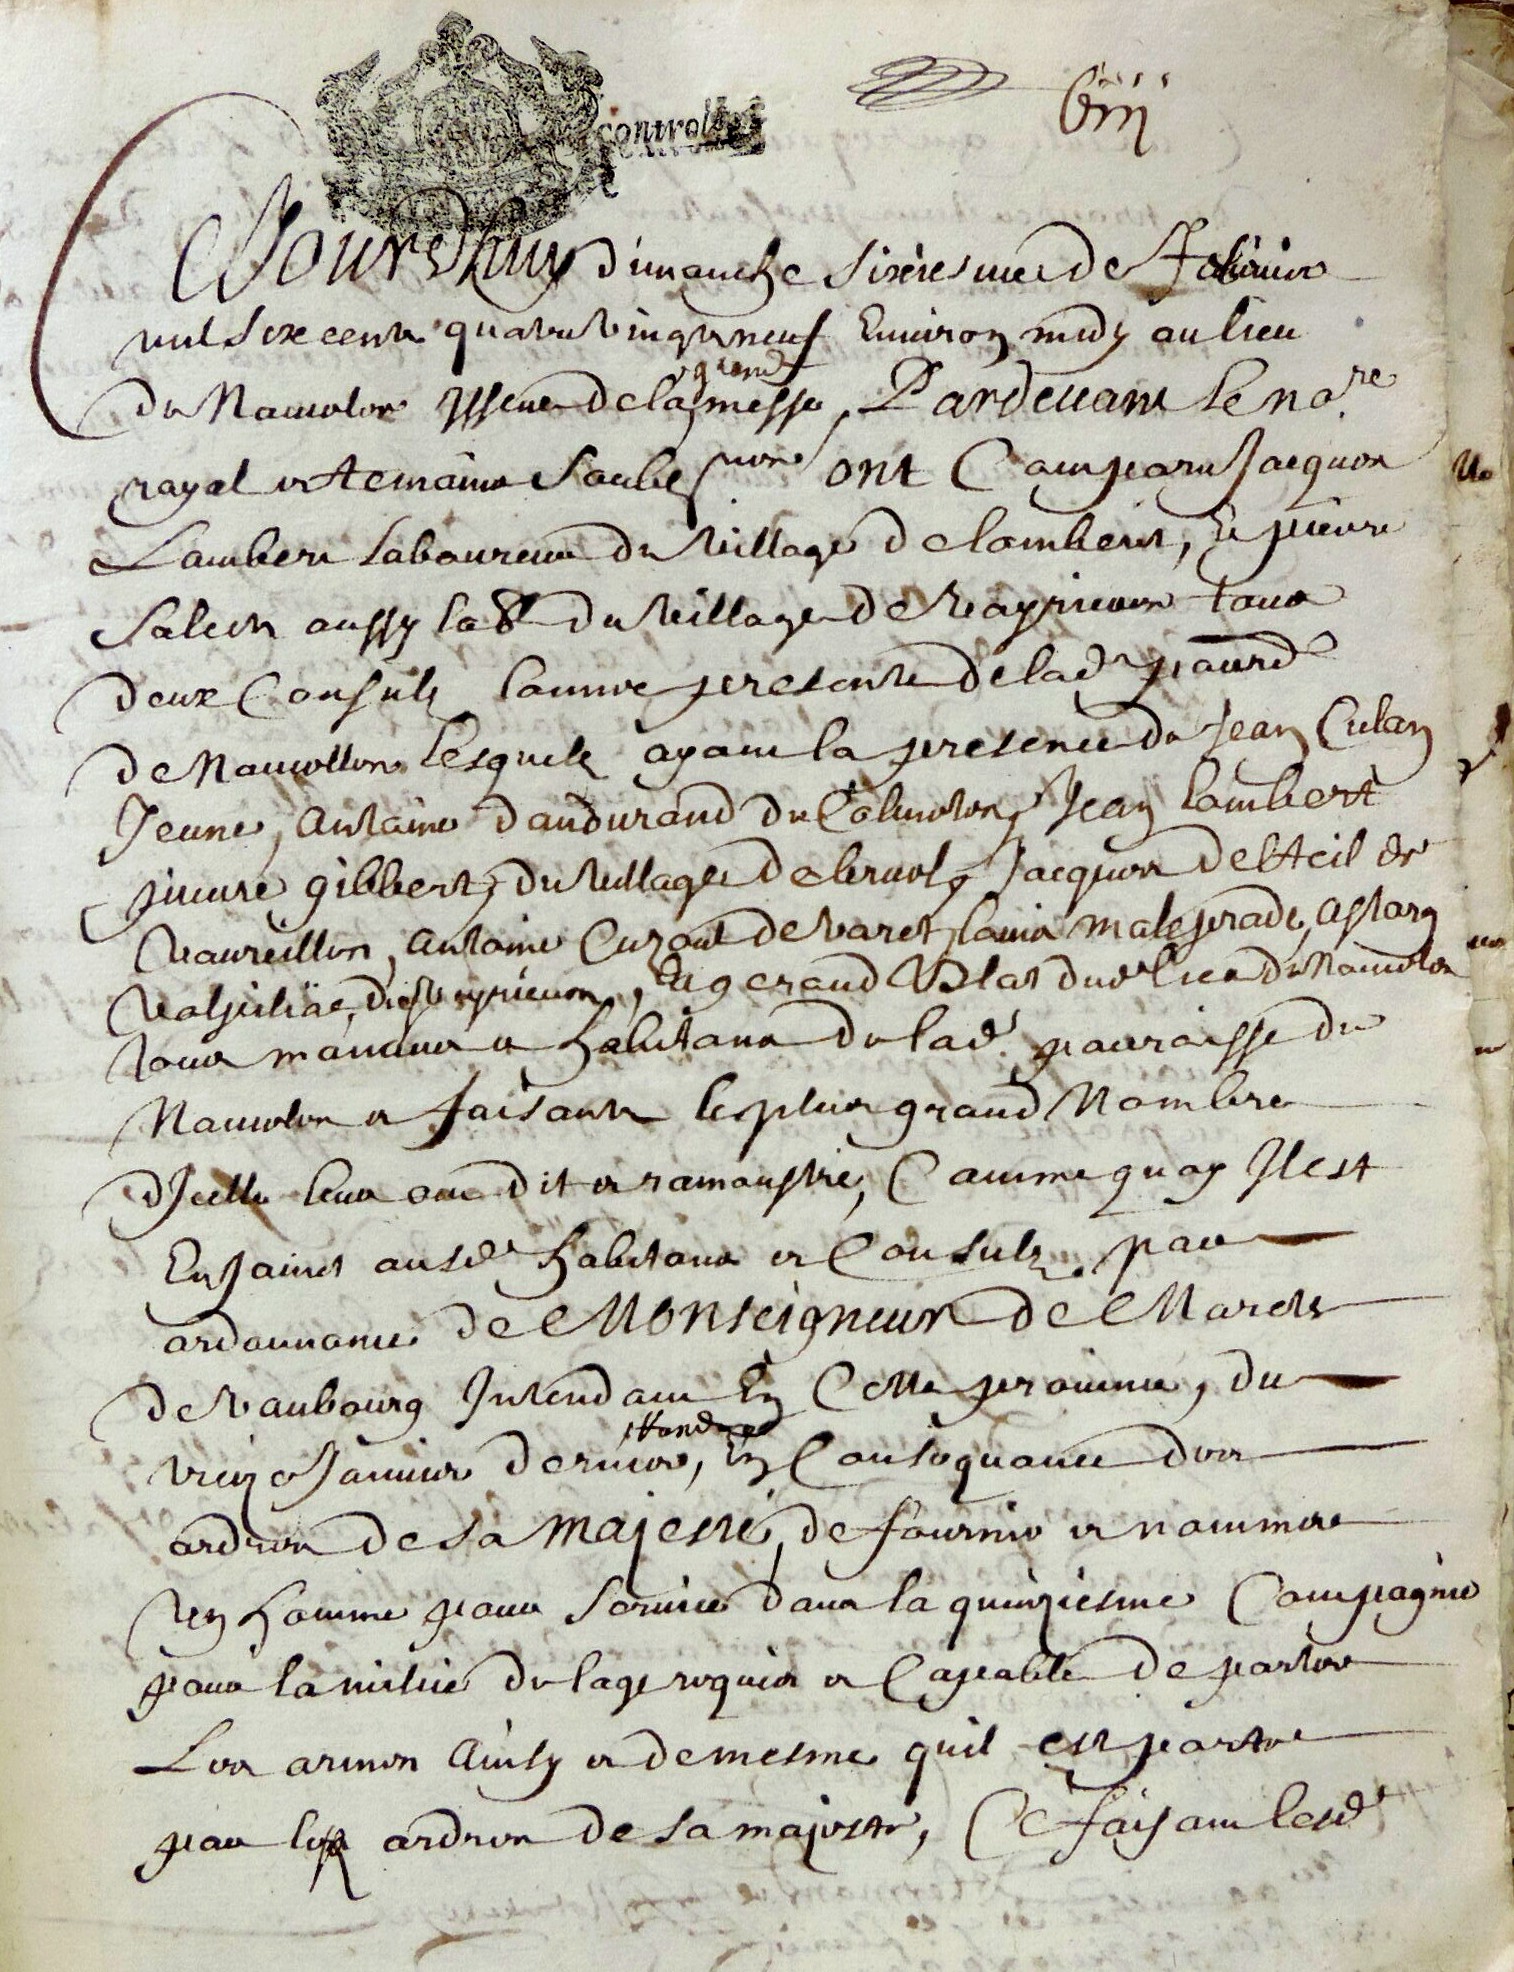 controlle
Jourdhuy dimanche sixiesme de febvrier
mil six cents quatre vingts neuf Environ midy au lieu
de Nauvolor yssue de la grand messe, Pardevant le nore
royal et temoins soubssignes ont Comparu Jacques
Lambert laboureur du village de lambert, Et pierre
Salesse aussy lab du village de Veyrieres tous
deux Consuls lannee presente de lad parr
de Nauvollon lesquels ayant la presence de Jean Culan
Jeune, Antoine dandurand du Jean lambert
pierre gibbert, du village de Jacques delteil de
Antoine de Varet, louis maleprade,
du Veyrieres, Et gerand Blat dud lieu de Nauvolon
tous manans et habitans de lad parroisse de
Nauvolon et faisants le plus grand Nombre
dJcelle leur ont dit et ramonstre, Comme quoy Jl est
Enjoinct ausd habitans et Consuls par
ordonnance de Monseigneur de Marets
de Vaubourg Intendant En Cette province, du
Janvier dernier, En Consequance des
ordres de sa majeste, de fournir et nommer
Un homme pour servir dans la quinziesme Compagnie
pour la milice de lage requis et Capable de porter
Les armes Ainsy et de mesme quil est porte
par les ordres de sa majeste, Ce faisant lesd